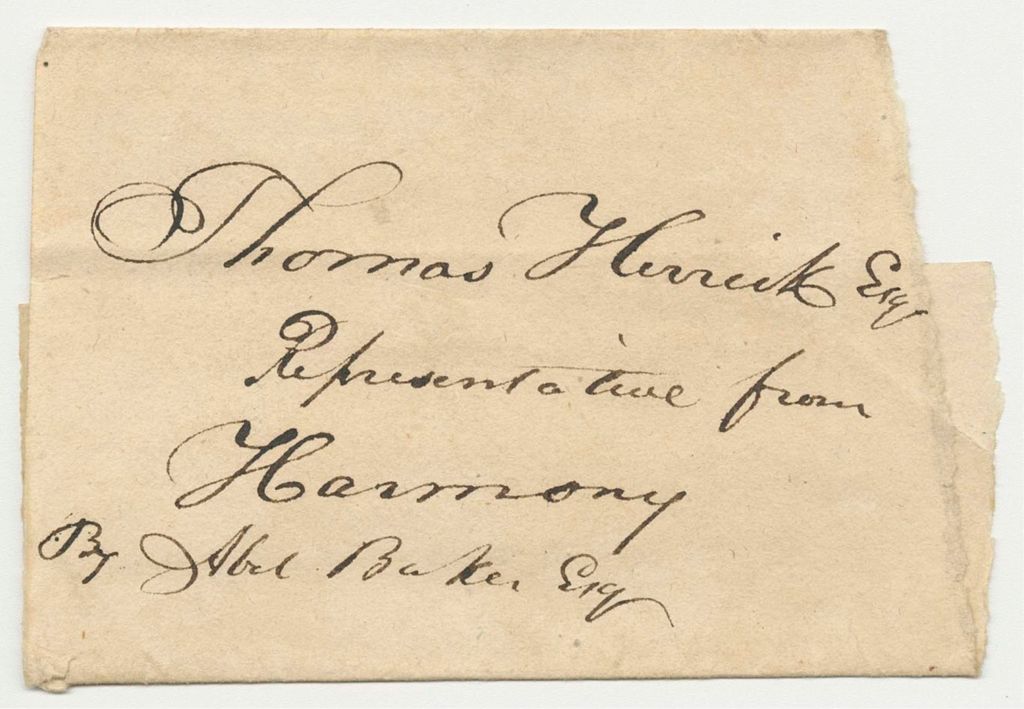 Thomas Herrick Esq
Representative from
Harmony
By Abel Baker Esq